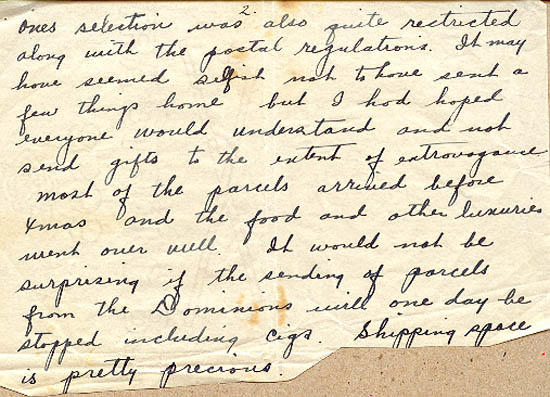 2.
ones selection was also quite restricted
along with the postal regulations. It may
have seemed selfish not to have sent a
few things home but I had hoped
everyone would understand and not
send gifts to the extent of extravagance
most of the parcels arrived before
Xmas and the food and other luxuries
went over well. It would not be
surprising if the sending of parcels
from the Dominions will one day be
stopped including cigs. Shipping space
is pretty precious.